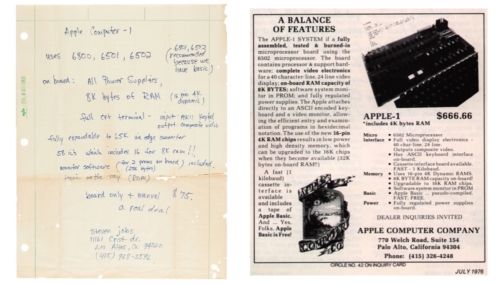 Apple Computer-1
uses 6800, 6501, 6502
(6501, 6502
recommended
because we
have basic)
on board: All Power Supplies,
8K bytes of RAM (16 pin 4K
dynamic)
full crt terminal - input ASCII keyboard
output composite video
fully expandable to 65K via edge connector
58 ic's which includes 16 for 8K ram!!
board only + manual $75.
a real deal
steven jobs
11161 Crist dr.
Los Altos, Ca
(415)
A BALANCE
OF FEATURES
The APPLE-1 SYSTEM if a fully
assembled, tested & burned-in
microprocessor board using the
6502 microprocessor. The board
contains processor & support hard-
ware; complete video electronics
for a 40 character line, 24 line video
display; on-board RAM capacity of
8K BYTES; software system monitor
in PROM; and fully regulated
power supplies. The Apple attaches
directly to an ASCII keyboard
and a video monitor, allow-
ing the efficient entry and examina-
tion of programs in hexidecimal
notation. The use of the new 16-pin
4K RAM chips results in low power
and high density memory, which
can be upgraded to the 16K chips
when they become available [32K
bytes on-board RAM!!]
A fast [1
kilobaud]
cassette in-
terface is
available
and includes
a tape of
Apple Basic.
And ... Yes,
Folks, Apple
Basic is Free!
APPLE-1 $666.66
*includes 4K bytes RAM
Micro • 6502 Microprocessor
Interface • Full video display electronics -
40 char. line, 24 line.
Outputs composite video.
• Has ASCII keyboard interface
on-board.
• Cassette interface board available.
FAST - 1 Kilobaud!
Memory • Uses 16-pin 4K Dynamic RAMS.
• 8K BYTE RAM capacity on-board!
• Upgradable to 16K RAM chips.
• Software system monitor in PROM
Basic • Apple Basic - pseudo-compiled,
FAST, FREE.
Power • Fully regulated power supplies
on-board.
DEALER INQUIRIES INVITED
APPLE COMPUTER COMPANY
770 Welch Road, Suite 154
Palo Alto, California 94304
Phone: (415) 326-4248
CIRCLE NO. 42 ON INQUIRY CARD
JULY 1976